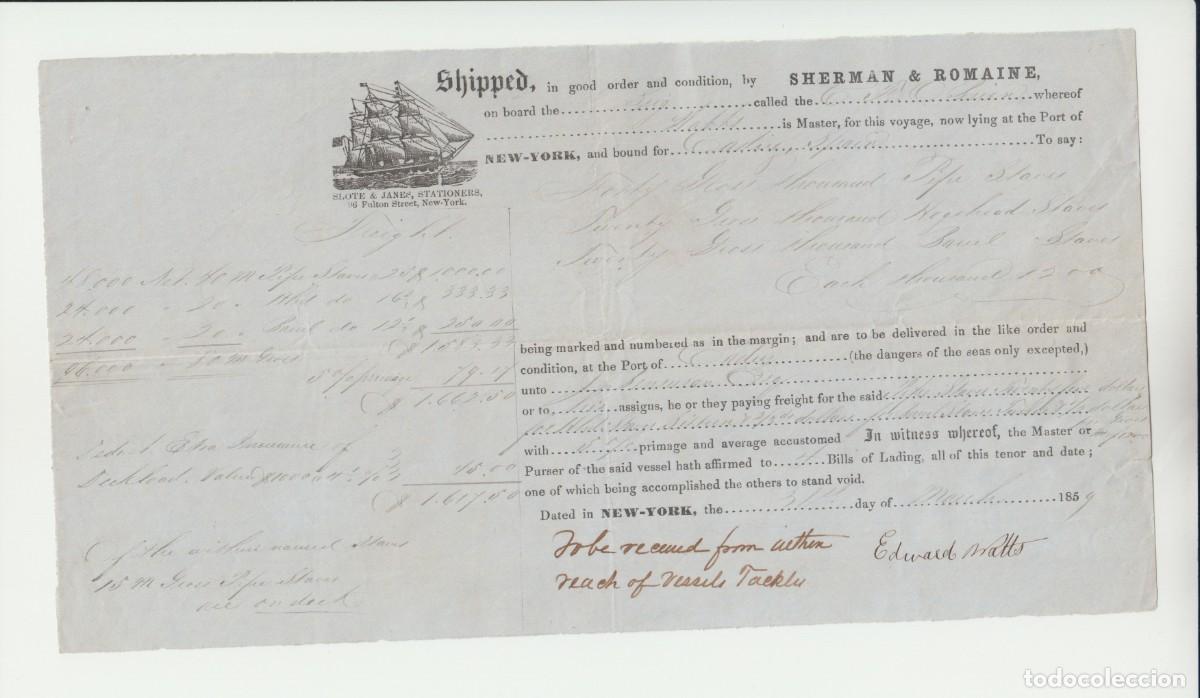 Shipped, in good order and condition, by SHERMAN & ROMAINE,
on board the Brig called the whereof
Watts is Master, for this voyage, now lying at the Port of
NEW-YORK, and bound for Cadiz, Spain To say:
SLOTE & JANES, STATIONERS,
96 Fulton Street, New-York.
Forty Gross thousand Pipe Staves
Twenty Gross thousand Hogshead Staves
Twenty Gross thousand Barrel Staves
Each thousand 1200
Freight
48,000 Net. 40 M Pipe Staves 25 $ 1000.00
24.000 " 20 " Hhd do 16 $ 333.33
24.000 20 " Barrel do 12 $ 250.00
96.000 80 M Gross $ 1583.33
5 % primage 79.17
$ 1.662.50
Deduct Extra Insurance of
Deckload. Valued $1000 45.00
$ 1.617.50
Of the within named Staves
15 M Gross Pipe Staves
are on deck
being marked and numbered as in the margin; and are to be delivered in the like order and
condition, at the Port of Cadiz (the dangers of the seas only excepted,)
unto Esq
or to his assigns, he or they paying freight for the said Pipe Staves dollars
dollars dollars
with 5 % primage and average accustomed In witness whereof, the Master or
Purser of the said vessel hath affirmed to Bills of Lading, all of this tenor and date;
one of which being accomplished the others to stand void.
Dated in NEW-YORK, the 31st day of March 1859
To be received from within
reach of Vessels Tackles
Edward Watts
todocoleccion